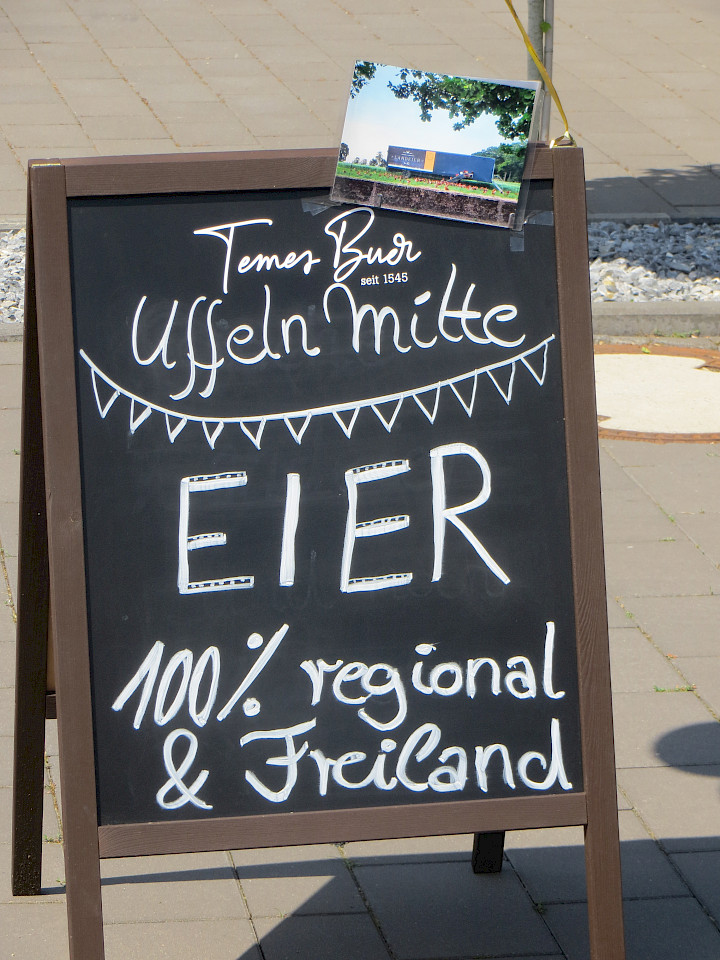 LANDEIER
Temes Buer
seit 1545
Uffeln Mitte
EIER
100% regional
& Freiland